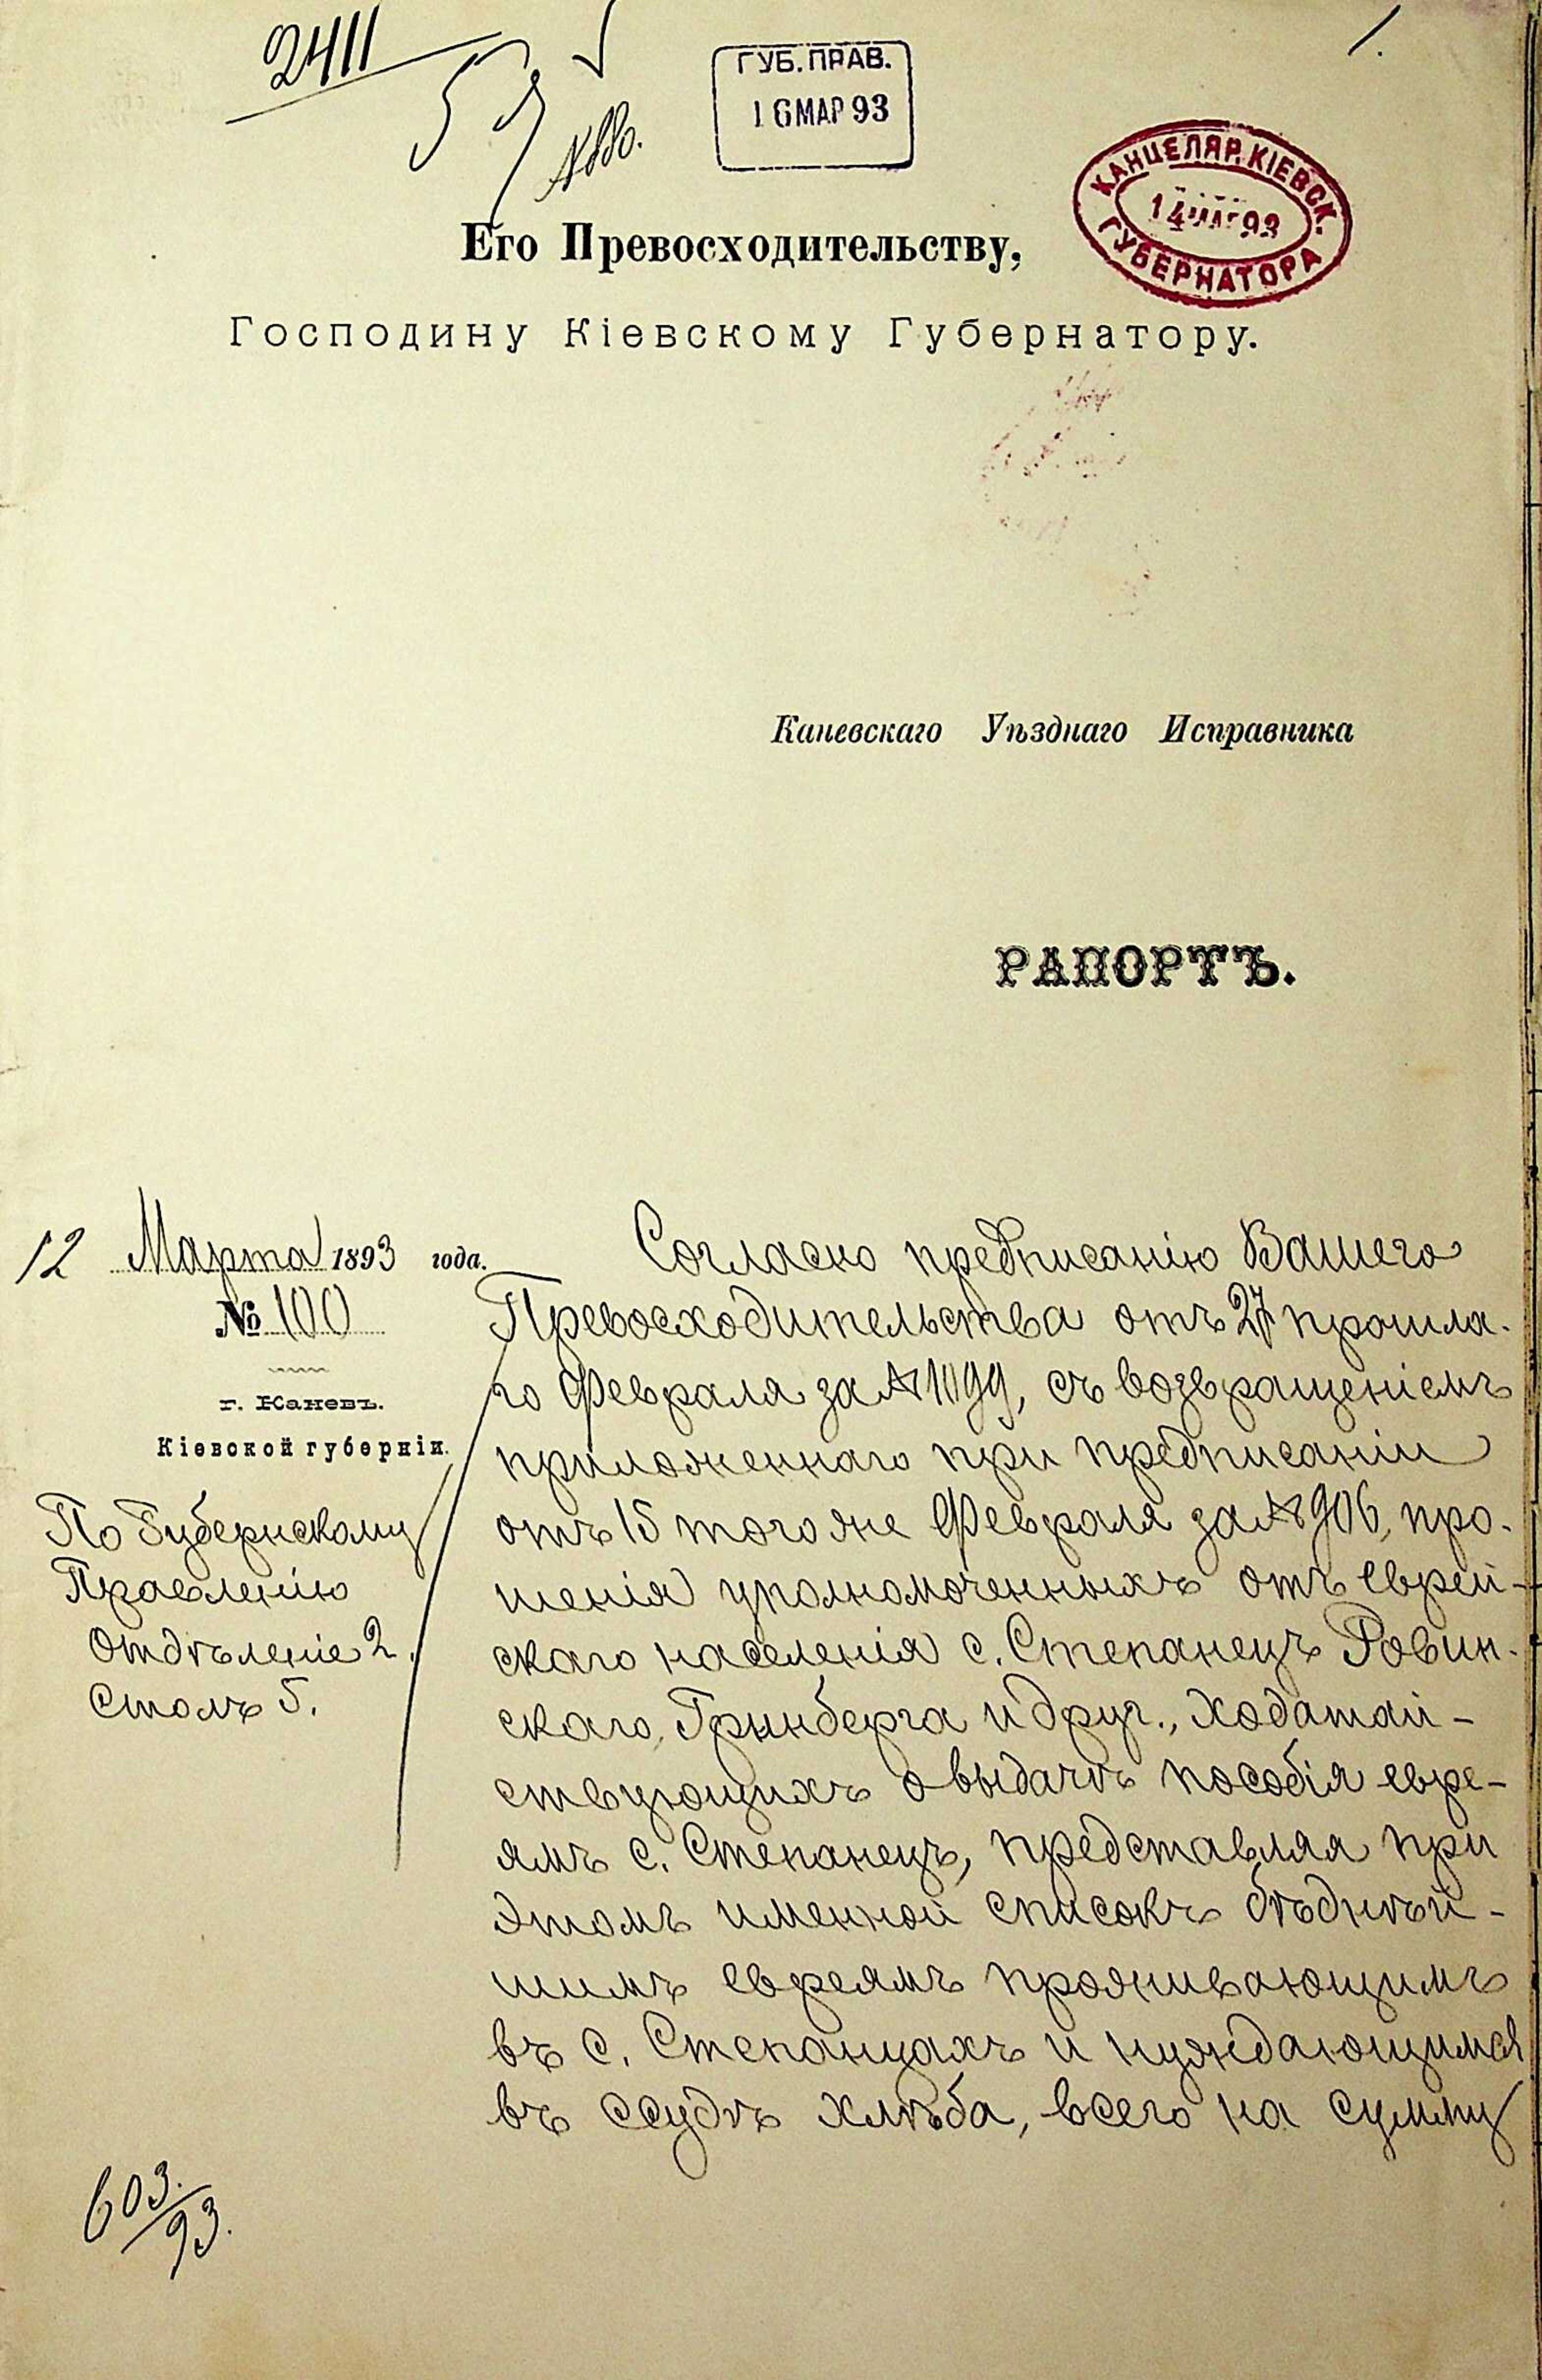 2411
1.
ГУБ. ПРАВ.
16 МАР 93
КАНЦЕЛЯР. КІЕВСК.
14 МАР 93
ГУБЕРНАТОРА
Его Превосходительству,
Господину Кіевскому Губернатору.
Каневскаго Уѣзднаго Исправника
РАПОРТЪ.
12 Марта 1893 года.
№ 100
г. Каневъ.
Кіевской губерніи.
По Губернскому
Правленію
Отдѣленіе 2.
Столъ 5.
Согласно предписанію Вашего
Превосходительства отъ 27 прошла-
го Февраля за № 1199, съ возвращеніемъ
приложеннаго при предписаніи
отъ 15 того же Февраля за № 906, про-
шенія уполномоченныхъ отъ еврей-
скаго населенія с. Степанецъ Ровин-
скаго, Гринберга и друг., ходатай-
ствующихъ о выдачѣ пособія евре-
ямъ с. Степанецъ, представляя при
этомъ именной списокъ бѣднѣй-
шимъ евреямъ проживающимъ
въ с. Степанцахъ и нуждающимся
въ ссудѣ хлѣба, всего на сумму
603.
93.